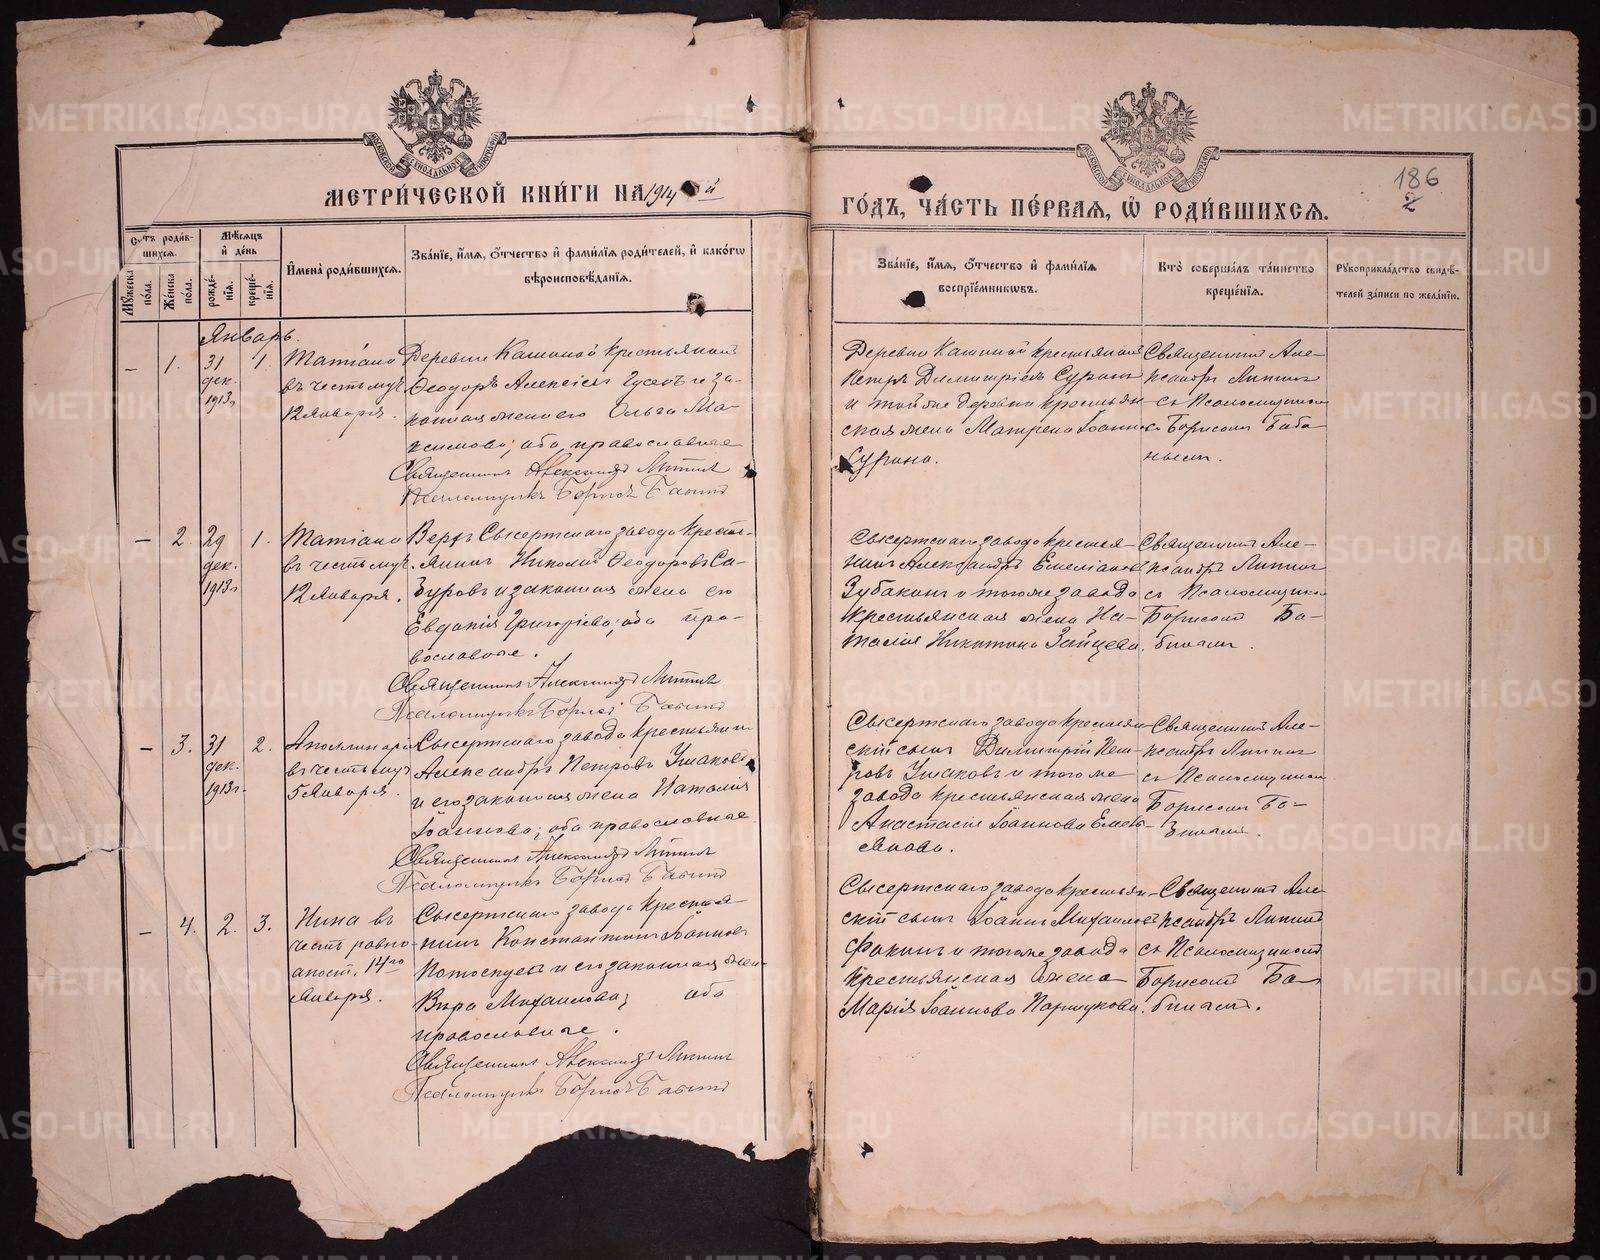 МЕТРИ́ЧЕСКОЙ КНИ́ГИ НА 1914 й
ГО́ДЪ, ЧА́СТЬ ПЕ́РВАЯ, Ѡ҆ РОДИ́ВШИХСЯ.
186
2
Счетъ роди́в-
шихся.
Мѣ́сяцъ
и҆ де́нь
Мꙋ́жеска
по́ла.
Же́нска
по́ла.
рожде́-
нїя.
креще́-
нїя.
И҆мена̀ роди́вшихся.
Зва́нїе, и҆́мя, ѻ҆́тчество и҆ фами́лїя роди́телей, и҆ како́гѡ
вѣроисповѣ́данїя.
Зва́нїе, и҆́мя, ѻ҆́тчество и҆ фами́лїя
воспрїе́мникѡвъ.
Кто̀ соверша́лъ та́инство
креще́нїя.
Рꙋкоприкла́дство свидѣ́-
телей за́писи по жела́нїю.
Январь.
– 1. 31 1.
дек.
1913г
Татіана
въ честь муч.
12 Января.
Деревни Кашиной крестьянин
Ѳеодоръ Алексіевъ Гусевъ и за-
конная жена его Ольга Ма-
ксимова; оба православные
Священникъ Александръ
Псаломщикъ Борисъ
Деревни Кашиной крестьянин
Петръ Димитріевъ Суринъ
и той же деревни крестьян
ская жена Матрена Іоаннова
Сурина.
Священникъ Але-
ксандръ
съ Псаломщиком
Борисомъ
– 2. 29 1.
дек.
1913г
Татіана
въ честь муч.
12 Января.
Верхъ Сысертскаго завода кресть-
янинъ Николай Ѳеодоровъ Са-
зуровъ и законная жена его
Евдокія Григоріева; оба пра-
вославные.
Священникъ Александръ
Псаломщикъ Борисъ
Сысертскаго завода крестья-
нинъ Александръ Емеліановъ
Зубакинъ и того же завода
крестьянская жена На-
талія Никитина Зайцева.
Священникъ Але-
ксандръ
съ Псаломщиком
Борисомъ Ба-
бинымъ.
– 3. 31 2.
дек.
1913г.
Аполлинарія
въ честь муч
5 Января.
Сысертскаго завода крестьянин
Александръ Петровъ Ушаковъ
и его законная жена Наталія
Іоаннова; оба православные
Священникъ Александръ
Псаломщикъ Борисъ
Сысертскаго завода крестьян
скій сынъ Димитрій Пет-
ровъ Ушаковъ и того же
завода крестьянская жена
Анастасія Іоаннова Емель-
янова.
Священникъ Але-
ксандръ
съ Псаломщиком
Борисомъ Ба-
бинымъ.
– 4. 2. 3.
Нина въ
честь равно-
апост. 14го
Января.
Сысертскаго завода крестья-
нинъ Константинъ Іоанновъ
Потоскуевъ и его законная жена
Вѣра Михаилова; оба
православные.
Священникъ Александръ
Псаломщикъ Борисъ
Сысертскаго завода крестьян
скій сынъ Іоаннъ Михаиловъ
Фокинъ и того же завода
крестьянская жена
Марія Іоаннова Паршукова.
Священникъ Але-
ксандръ
съ Псаломщикомъ
Борисомъ Ба-
бинымъ.
METRIKI.GASO-URAL.RU